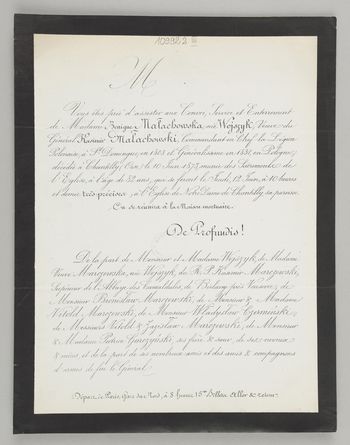 10992 2 III
M
Vous êtes prié d'assister aux Convoi, Service et Enterrement
de Madame Bénigne Małachowska, née Wężyk, Veuve du
Général Kasimir Małachowski, Commandant en Chef la Légion
Polonaise, à St. Domingue, en 1803 et Généralissime en 1831, en Pologne,
décédée à Chantilly, Oise, le 10 Juin 1873, munie des Sacrements de
l'Eglise, à l'âge de 82 ans, qui se feront le Jeudi, 12 Juin, à 10 heures
et demie très-précises, à l'Eglise de Notre Dame de Chantilly sa paroisse.
On se réunira à la Maison mortuaire.
De Profundis!
De la part de Monsieur et Madame Wężyk, de Madame
Veuve née Wężyk, du R. P. Kasimir
Supérieur de l'Abbaye des Camaldules, de Bielany près Varsovie, de
Monsieur Bronisław de Monsieur & Madame
Witold de Monsieur Władysław
de Messieurs Witold & de Monsieur
& Madame ses frère & sœur, de ses neveux
& nièces, et de la part de ses nombreux amis et des amis & compagnons
d'armes de feu le Général.
Départ de Paris, Gare du Nord, à 8 heures 15m. Billets Aller & retour.